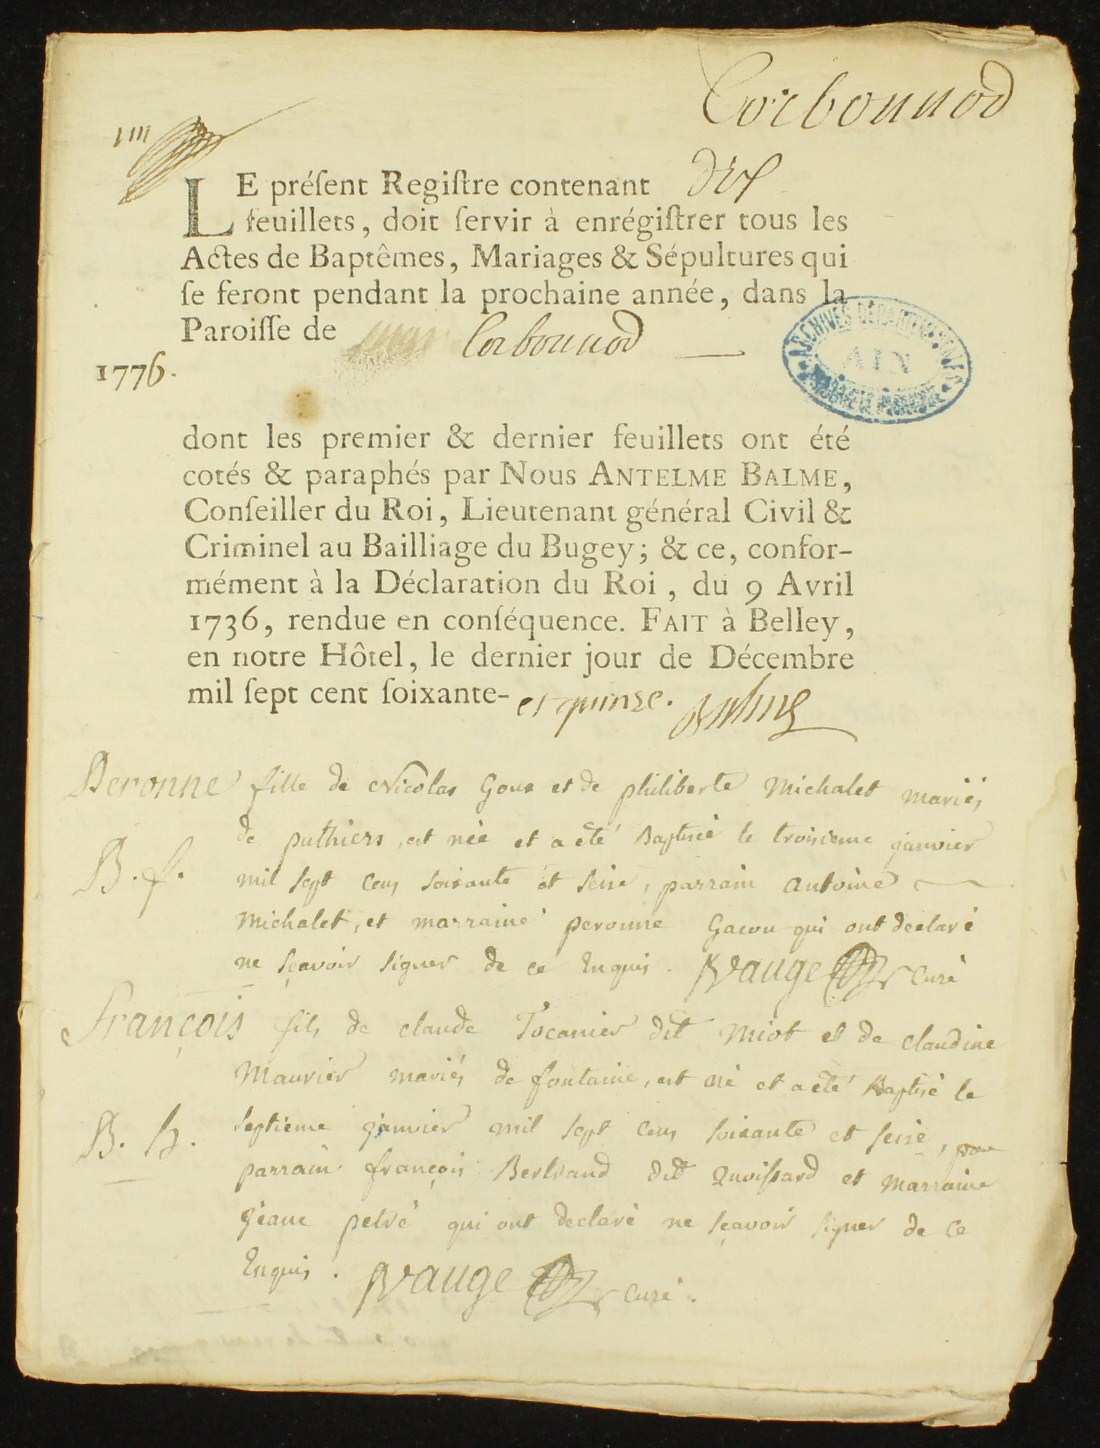 Corbonnod
LE préſent Regiſtre contenant dix
feuillets, doit ſervir à enrégiſtrer tous les
Actes de Baptêmes, Mariages & Sépultures qui
ſe feront pendant la prochaine année, dans la
Paroiſſe de Corbonnod
1776.
ARCHIVES DÉPARTEMENTALES
AIN
dont les premier & dernier feuillets ont été
cotés & paraphés par Nous ANTELME BALME,
Conſeiller du Roi, Lieutenant général Civil &
Criminel au Bailliage du Bugey; & ce, confor-
mément à la Déclaration du Roi, du 9 Avril
1736, rendue en conſéquence. FAIT à Belley,
en notre Hôtel, le dernier jour de Décembre
mil ſept cent ſoixante-et quinze. Balme
Peronne fille de Nicolas Goux et de philiberte Michalet mariés
de puthiers, est née et a été Baptisé le troisieme janvier
B. f. mil sept cens soixante et seise, parrain antoine
Michalet, et marraine peronne Gacon qui ont declaré
ne sçavoir signer de ce Enquis. Vauge Curé
François fils de claude Tocanier dit Miot et de claudine
Maurier mariés de fontaine, est né et a été Baptisé le
B. g. septieme janvier mil sept cens soixante et seise,
parrain françois Bertrand dit Quoissard et marraine
jeane petré qui ont declaré ne sçavoir signer de ce
Enquis. Vauge curé.